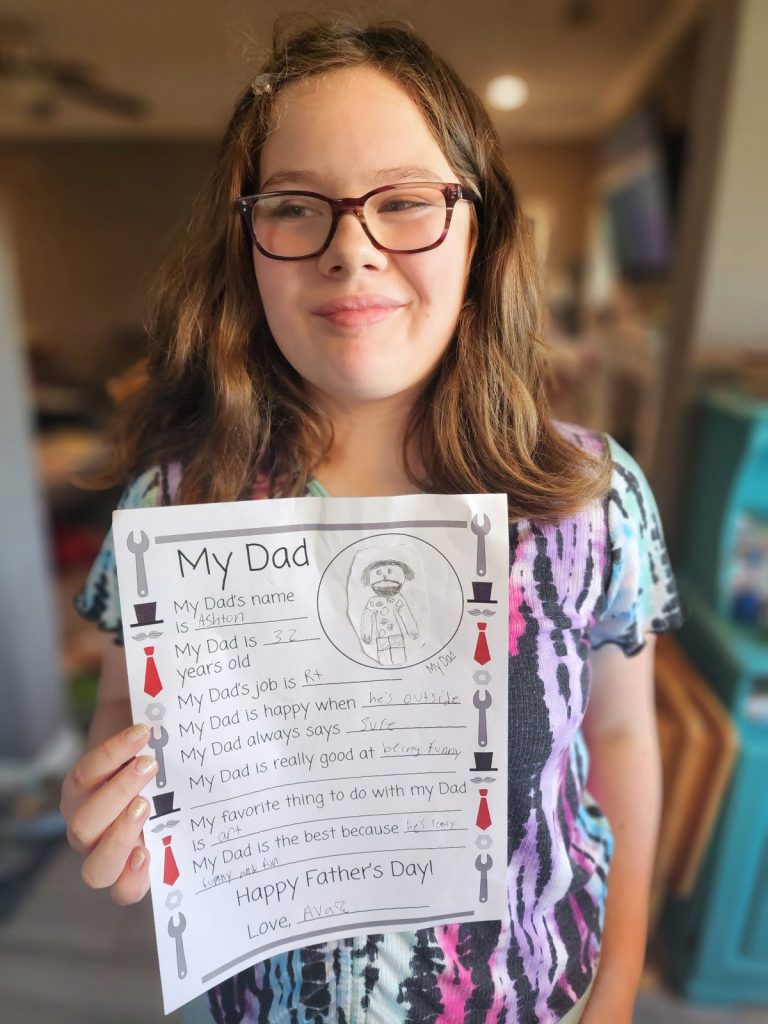 My Dad
My Dad's name
is Ashton
My Dad is 32
years old
My Dad
My Dad's job is Rt
My Dad is happy when he's outside
My Dad always says Sure
My Dad is really good at being funny
My favorite thing to do with my Dad
is art
My Dad is the best because he's realy
funny and fun
Happy Father's Day!
Love, Ava